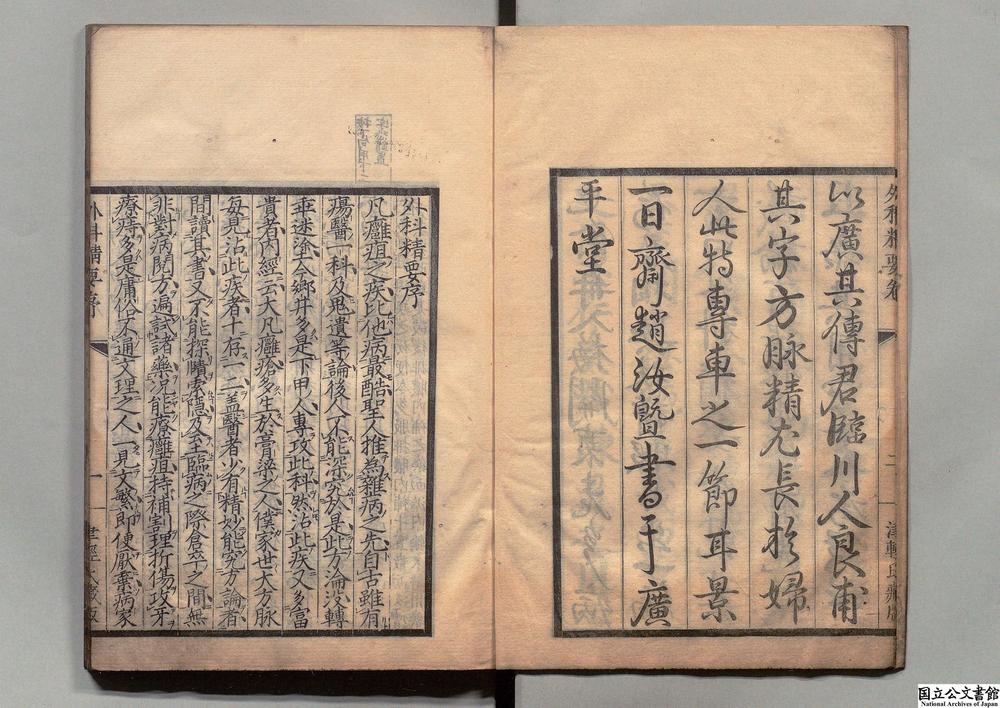 外科精要卷
二
以廣其傳君臨川人良甫
其字方脉精尤長於婦
人此特專車之一節耳景
一日齋趙汝暨書于廣
平堂
外科精要序
凡癰疽之疾比他病最酷聖人推為雜病之先自古雖有
瘍醫一科及鬼遺等論後人不能深究於是此方淪沒轉
乖迷塗今鄉井多是下甲人專攻此科然沾此疾又多富
貴者內經云大凡癰瘡多生於膏粱之人僕家世大方脉
每見沾此疾者十存一二蓋醫者少有精妙能究方論者
閱讀其書又不能探賾索隱及至臨病之際倉卒之間無
非對病閱方遍試諸藥况能療癰疽持補割理折傷攻牙
療痔多是庸俗不通文理之人一見文繁即便厭棄病家
外科精要序
一
国立公文書館
National Archives of Japan